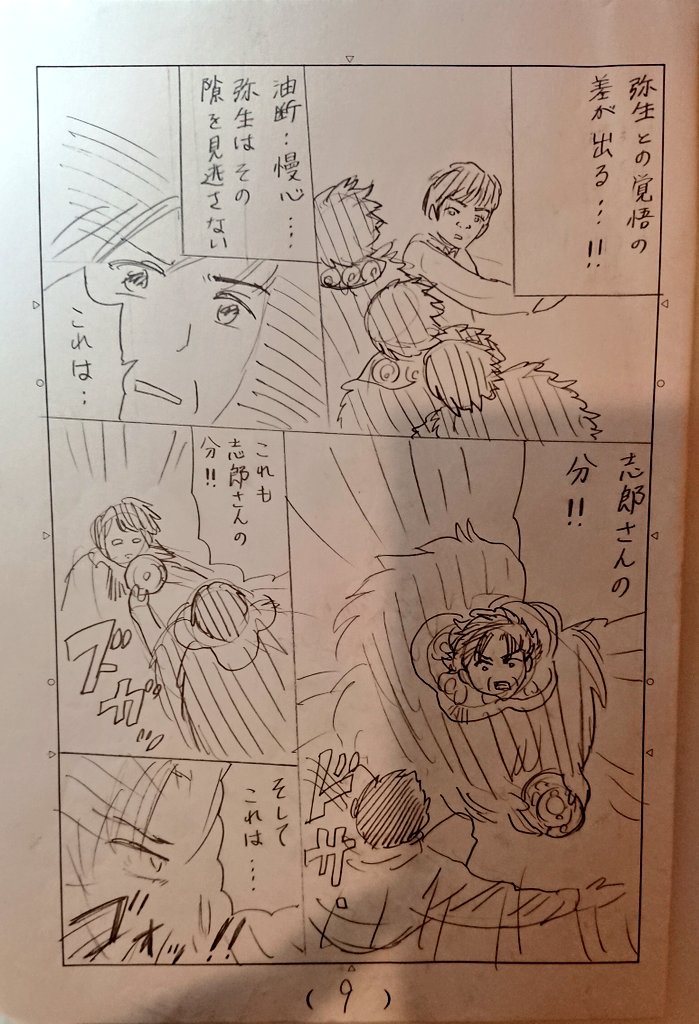 弥生との覚悟の
差が出る…!!
油断…慢心…
弥生はその
隙を見逃さない
これは…
志郎さんの
分!!
ドガッ
これも
志郎さんの
分!!
ブガッ
そして
これは…
ブオッ!!
(9)